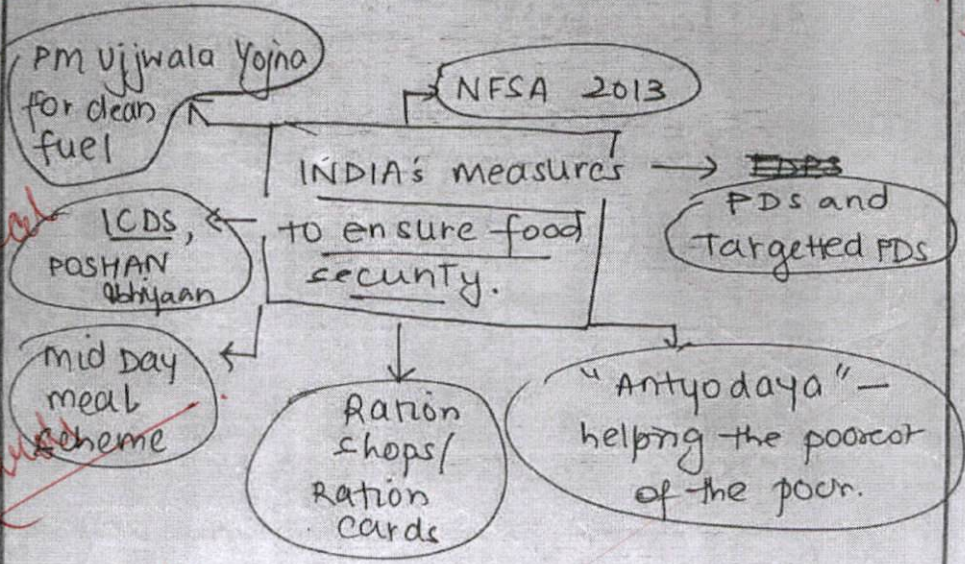 PM Ujjwala Yojna
for clean
fuel
NFSA 2013
INDIA's measures
to ensure food
security.
PDS and
Targetted PDS
ICDS,
POSHAN
abhiyaan
Mid Day
meal
scheme
Ration
shops/
Ration
cards
"Antyodaya" –
helping the poorest
of the poor.